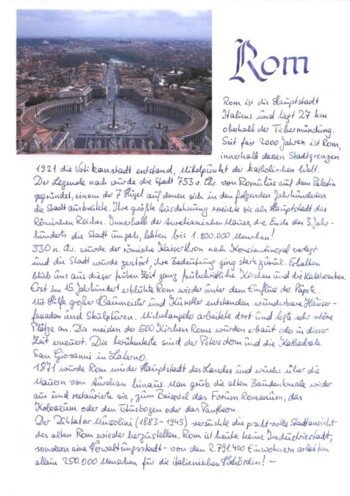 Rom
Rom ist die Hauptstadt
Italiens und liegt 27 km
oberhalb der Tibermündung.
Seit fast 2000 Jahren ist Rom,
innerhalb dessen Stadtgrenzen
1921 die Vatikanstadt entstand, Mittelpunkt der katholischen Welt.
Der Legende nach wurde die Stadt 753 v. Chr. von Romulus auf dem Palatin
gegründet, einem der 7 Hügel auf denen sich in den folgenden Jahrhunderten
die Stadt ausbreitete. Ihre größte Ausdehnung erreichte sie als Hauptstadt des
Römischen Reiches. Innerhalb der Aurelianischen Mauer, die Ende des 3. Jahr-
hunderts die Stadt umgab, lebten bis 1 800.000 Menschen!
330 n. Chr. wurde der römische Kaiserthron nach Konstantinopel verlegt
und die Stadt wurde zerstört, ihre Bedeutung ging stark zurück. Erhalten
blieb uns aus dieser frühen Zeit ganz frühchristliche Kirchen und die Katakomben.
Erst im 15. Jahrhundert erblühte Rom wieder unter dem Einfluss der Päpste.
Mit Hilfe großer Baumeister und Künstler entstanden wunderbare Häuser-
fassaden und Skulpturen. Michelangelo arbeitete dort und legte sehr schöne
Plätze an. Die meisten der 500 Kirchen Roms wurden erbaut oder in dieser
Zeit erneuert. Die berühmteste sind der Petersdom und die Kathedrale
San Giovanni in Laterno.
1871 wurde Rom wieder Hauptstadt des Landes und wuchs über die
Mauern von Aurelian hinaus. Man grub die alten Baudenkmale wieder
aus und restaurierte sie, zum Beispiel das Forum Romanum, das
Kolosseum oder den Titusbogen oder das Pantheon.
Der Diktator Mussolini (1883-1945) versuchte die prachtvolle Stadtansicht
des alten Rom wieder herzustellen. Rom ist heute keine Industriestadt,
sondern eine Verwaltungsstadt - von den 2.791.400 Einwohnern arbeiten
allein 250.000 Menschen für die italienischen Behörden! —